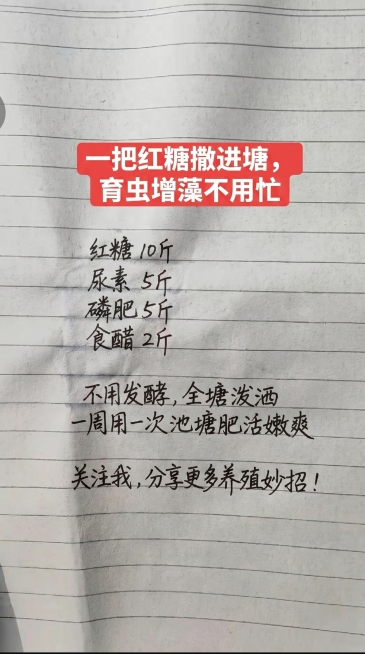 一把红糖撒进塘，
育虫增藻不用忙
红糖 10斤
尿素 5斤
磷肥 5斤
食醋 2斤
不用发酵，全塘泼洒
一周用一次池塘肥活嫩爽
关注我，分享更多养殖妙招！